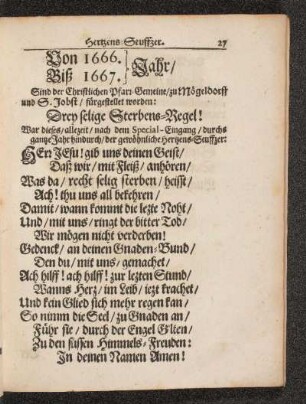 Hertzens Seuffzer. 27
Von 1666.
Biß 1667. } Jahr /
Sind der Christlichen Pfarr-Gemeine / zu Mögeldorff
und S. Jobst / fürgestellet worden:
Drey selige Sterbens-Regel!
War dieses / allezeit / nach dem Special-Eingang / durchs
gantze Jahr hindurch / der gewöhnliche Hertzens-Seuffzer:
HErr JEsu! gib uns deinen Geist /
Daß wir / mit Fleiß / anhören /
Was da / recht selig sterben / heist /
Ach! thu uns all bekehren /
Damit / wann kommt die lezte Noht /
Und / mit uns / ringt der bitter Tod /
Wir mögen nicht verderben!
Gedenck / an deinen Gnaden-Bund /
Den du / mit uns / gemachet /
Ach hilff! ach hilff! zur lezten Stund /
Wanns Herz / im Leib / iezt krachet /
Und kein Glied sich mehr regen kan /
So nimm die Seel / zu Gnaden an /
Führ sie / durch der Engel
Zu den süssen Himmels-Freuden:
In deinen Namen Amen!